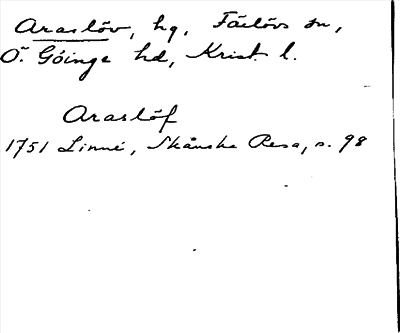 Araslöv, hg, Färlövs sn,
Ö. Göinge hd, Krist. l.
Araslöf
1751 Linné, Skånska Resa, s. 98